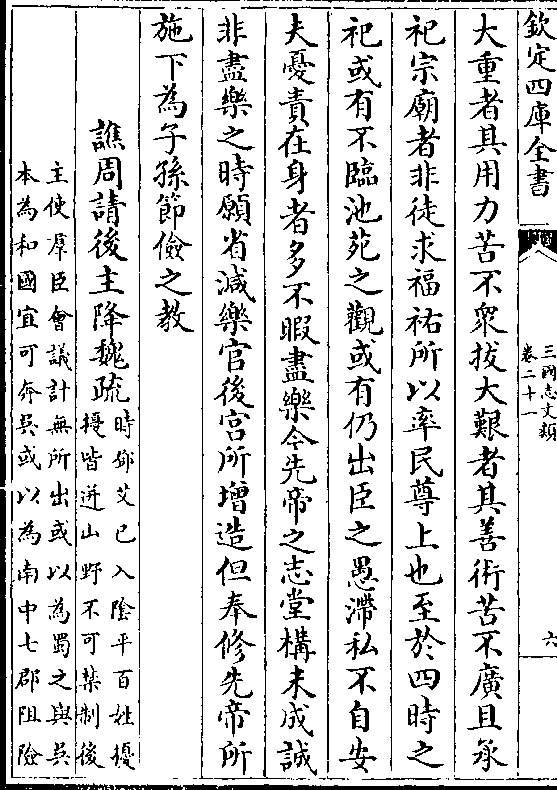 欽定四庫全書
三國志文類
卷二十一
六
大重者其用力苦不衆拔大艱者其善術苦不廣且承
祀宗廟者非徒求福祐所以率民尊上也至於四時之
祀或有不臨池苑之觀或有仍出臣之愚滯私不自安
夫憂責在身者多不暇盡樂今先帝之志堂構未成誠
非盡樂之時願省減樂官後宮所增造但奉修先帝所
施下為子孫節儉之教
譙周請後主降魏疏
時鄧艾已入陰平百姓擾
擾皆迸山野不可禁制後
主使羣臣會議計無所出或以為蜀之與吳
本為和國宜可奔吳或以為南中七郡阻險